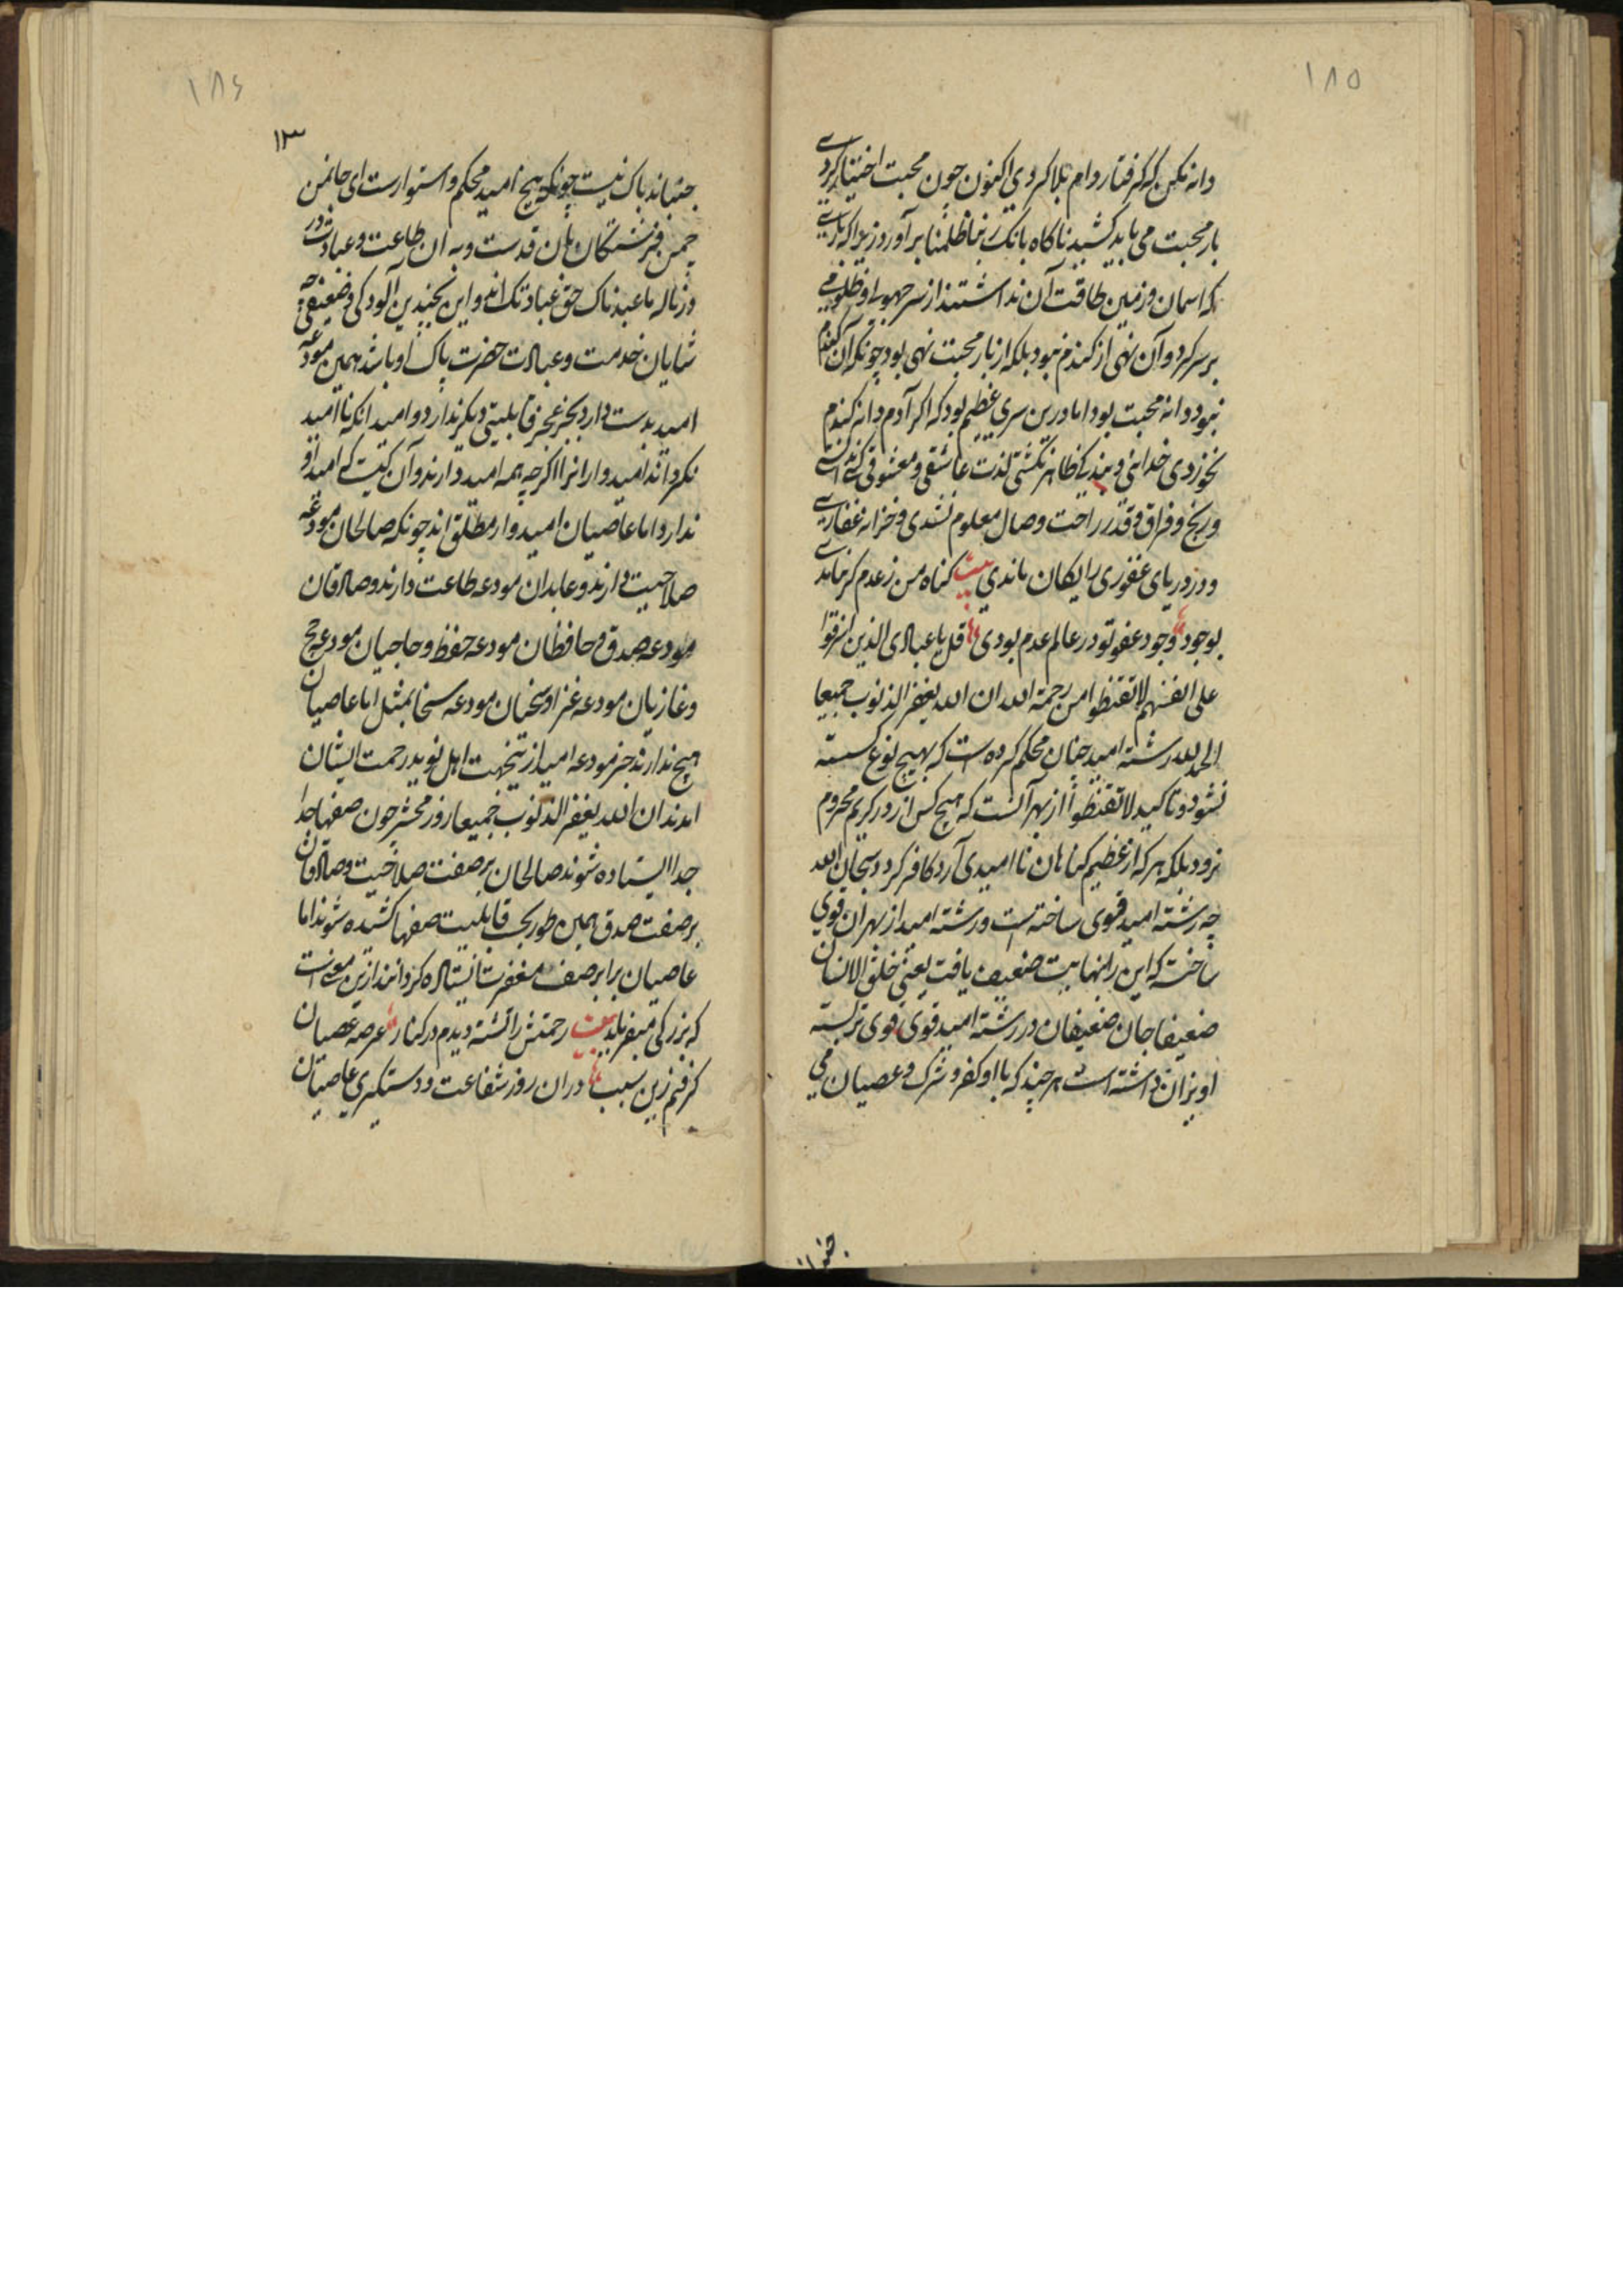 ۱۸۵
دانه مکن که گرفتار دام بلا کردی اکنون چون محبت اختیار کردے
بار محبت می باید کشید ناکاه بانک ربنا ظلمنا بر آورد زیرا که بارے
که اسمان و زمین طاقت آن نداشتند از سر جهولے و ظلومے
بر سر کرد و آن نهی از کندم نبود بلکه از بار محبت نهی بود چونکه آن کندم
نبود دانه محبت بود اما درین سری عظیم بود که اکر آدم دانه کندم
نخوردی خدائی و بندکی ظاهر نکشتی لذت عاشقی و معشوقی
و رنج و فراق و قدر راحت وصال معلوم نشدی و خزانه غفارے
و دردریای غفوری رایکان ماندی بیت کناه من ز عدم کر نیامدے
بوجود وجود عفو تو در عالم عدم بودی قل یا عبادی الذین اسرفوا
علی انفسهم لا تقنطوا من رحمة الله ان الله یغفر الذنوب جمیعا
الحمدلله رشته امید چنان محکم کرده است که بهیچ نوع کسسته
نشود و تاکید لا تقنطوا از بهر آنست که هیچ کس از در کریم محروم
نرود بلکه هر که از عظیم کناهان نا امیدی آرد کافر کردد سبحان الله
چه رشته امید قوی ساخته است و رشته امید از بهر آن قوی
ساخت که این را بنهایت ضعیف یافت یعنی خلق الانسان
ضعیفا جان ضعیفان در رشته امید قوی قوی تر بسته
اویزان داشته است هر چند که با او کفر و شرک و عصیان می
جنبانند
۱۸۶
جنبانند باک نیست چونکه هیچ امید محکم و استوار است ای جانمن
چمن فرشتکان بان قدست و به ان طاعت و عبادت در
در ناله ما عبدناک حق عبادتک اند و این بچندین آلودکی و ضعیفی چه
شایان خدمت و عبادت حضرت پاک او باشد همین مودعه
امید بدست دارد بجز عجز قابلیتی دیکر ندارد و امید انکه نا امید
نکرداند امیدوارانرا اکرچه همه امید دارند و آن کیست که امید او
ندارد اما عاصیان امیدوار مطلق اند چونکه صالحان مودعه
صلاحیت دارند و عابدان مودعه طاعت دارند و صادقان
مودعه صدق و حافظان مودعه حفظ و حاجیان مودعه حج
و غازیان مودعه غزا و سخیان مودعه سخا بمثل اما عاصیان
هیچ ندارند جز مودعه امید ازینجهت اهل نوید رحمت ایشان
امدند ان الله یغفر الذنوب جمیعا روز محشر چون صفها جدا
جدا ایستاده شوند صالحان بر صفت صلاحیت و صادقان
بر صفت صدق همین طور بحب قابلیت صفها کشیده شوند اما
عاصیان برابر صف مغفرت ایستاده کردانند ازین معنی است
که بزرکی میفرماید بیت رحمتش را تشنه دیدم در کنار عرصه عصیان
کرفتم زین سبب دران روز شفاعت و دستکیری عاصیان